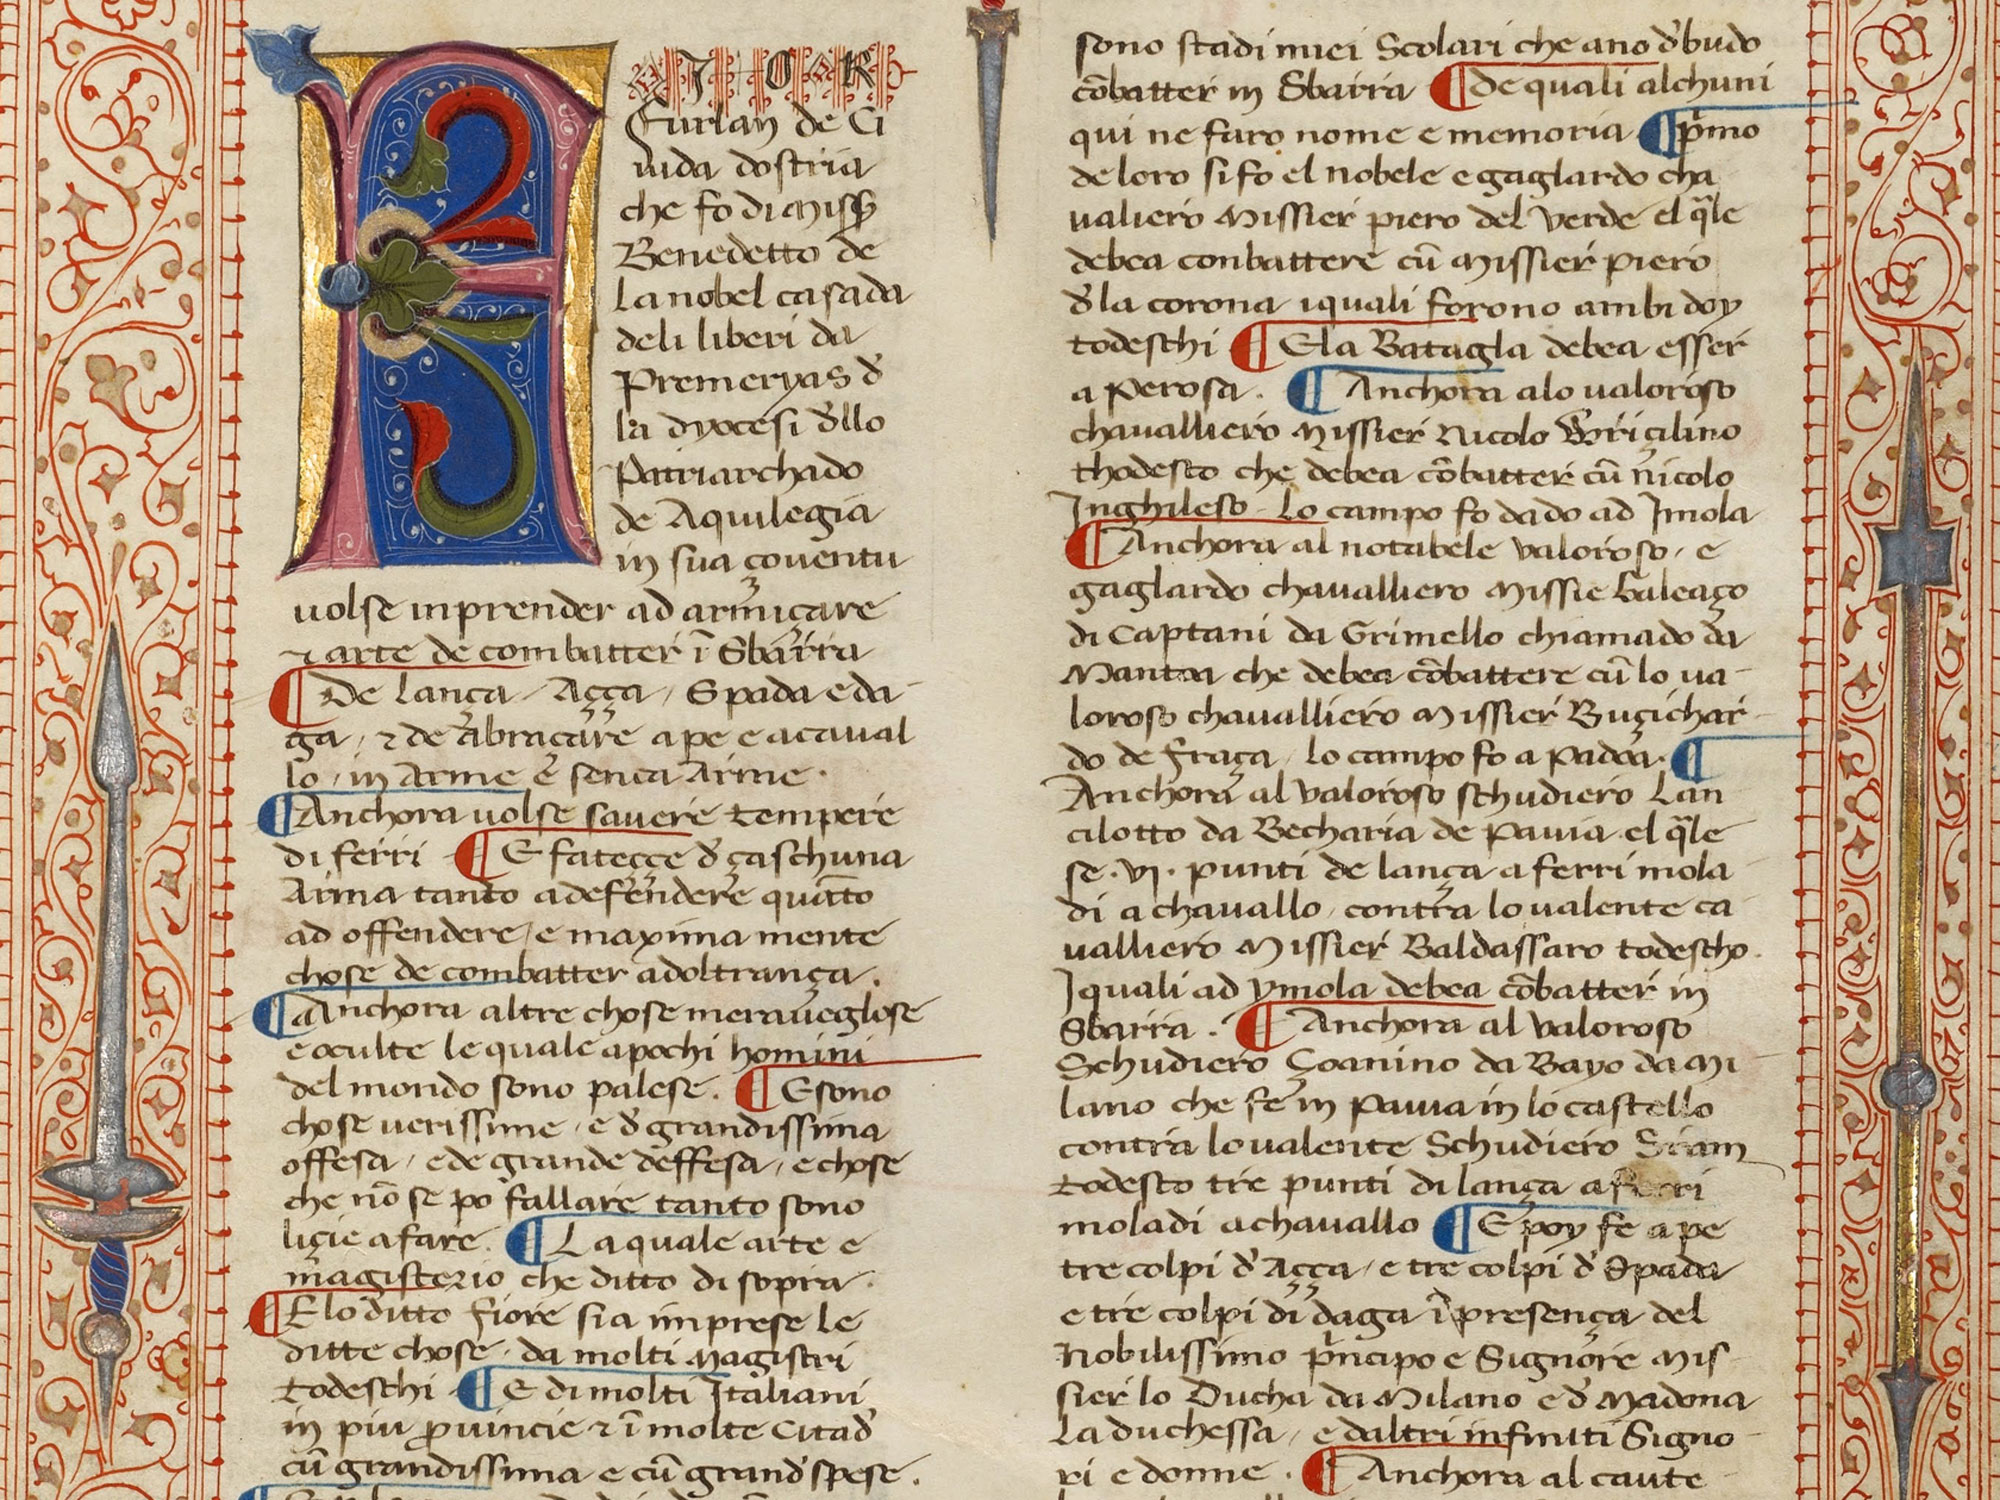 FIOR
Furlan de Ci
uida dostria
che fo di miss̃
Benedetto de
la nobel casada
deli liberi da
Premeryas d̃
la dyocesi d̃llo
Patriarchado
de Aquilegia
in sua çouentu
uolse inprender ad armiçare
⁊ arte de combatter ĩ Sbarra
¶ De lança / Açça / Spada e da-
ga / ⁊ de abraçare a pe e a caual
lo / in arme e sença arme.
¶ Anchora uolse sauere tempere
di ferri ¶ E fateççe d̃ çaschuna
arma tanto a defendere quãto
ad offendere / e maximamente
chose de combatter ad oltrança.
¶ Anchora altre chose merauegliose
e oculte le quale a pochi homini
del mondo sono palese. ¶ E sono
chose uerissime / e d̃ grandissima
offesa / e de grande deffesa / e chose
che nõ se po fallare tanto sono
liçie a fare. ¶ La quale arte e
magisterio che ditto di sopra.
¶ E lo ditto Fiore sia imprese le
ditte chose da molti Magistri
todeschi ¶ E di molti Italiani
in piu prouincie ⁊ ĩ molte Citad̃
cũ grandissima e cũ grand̃ spese.
sono stadi miei Scolari che ano d̃budo
cõbatter in Sbarra ¶ de quali alchuni
qui ne faro nome e memoria ¶ p̃mo
de loro si fo el nobele e gagliardo cha
ualiero Missier piero del verde el q̃le
debea conbattere cũ missier piero
d̃ la corona iquali forono ambi doy
todeschi ¶ E la Batagla debea esser
a Perosa. ¶ Anchora a lo ualoroso
chaualliero Missier Nicolo Voriçilino
thodesco che debea cõbatter cũ nicolo
Inghileso - Lo campo fo dado ad Imola
¶ Anchora al notabele valoroso / e
gagliardo chaualliero Missie Galeaço
di Captani da Grimello chiamado da
Mantoa che debea cõbattere cũ lo ua-
loroso chaualliero Missier Buçichar-
do de fraça / lo campo fo a Padoa. ¶
Anchora al valoroso schudiero Lan
cilotto da Becharia de Pauia el q̃le
fe .vj. punti de lança a ferri mola
di a chauallo / contra lo ualente ca
ualliero Missier Baldassaro todescho.
I quali ad ymola debea cõbatter in
Sbarra. ¶ Anchora al valoroso
Schudiero Çoanino da Bayo da Mi
lano che fe in Pauia in lo castello
contra lo ualente Schudiero Sram
todesco tre punti di lança a ferri
moladi a chauallo ¶ E poy fe a pe
tre colpi d̃ Açça / e tre colpi d̃ Spada
e tre colpi di daga ĩ presença del
Nobilissimo p̃ncipo e Signore Mis-
sier lo Ducha da Milano e d̃ Madona
la duchessa / e d'altri infiniti Signo-
ri e donne. ¶ Anchora al caute